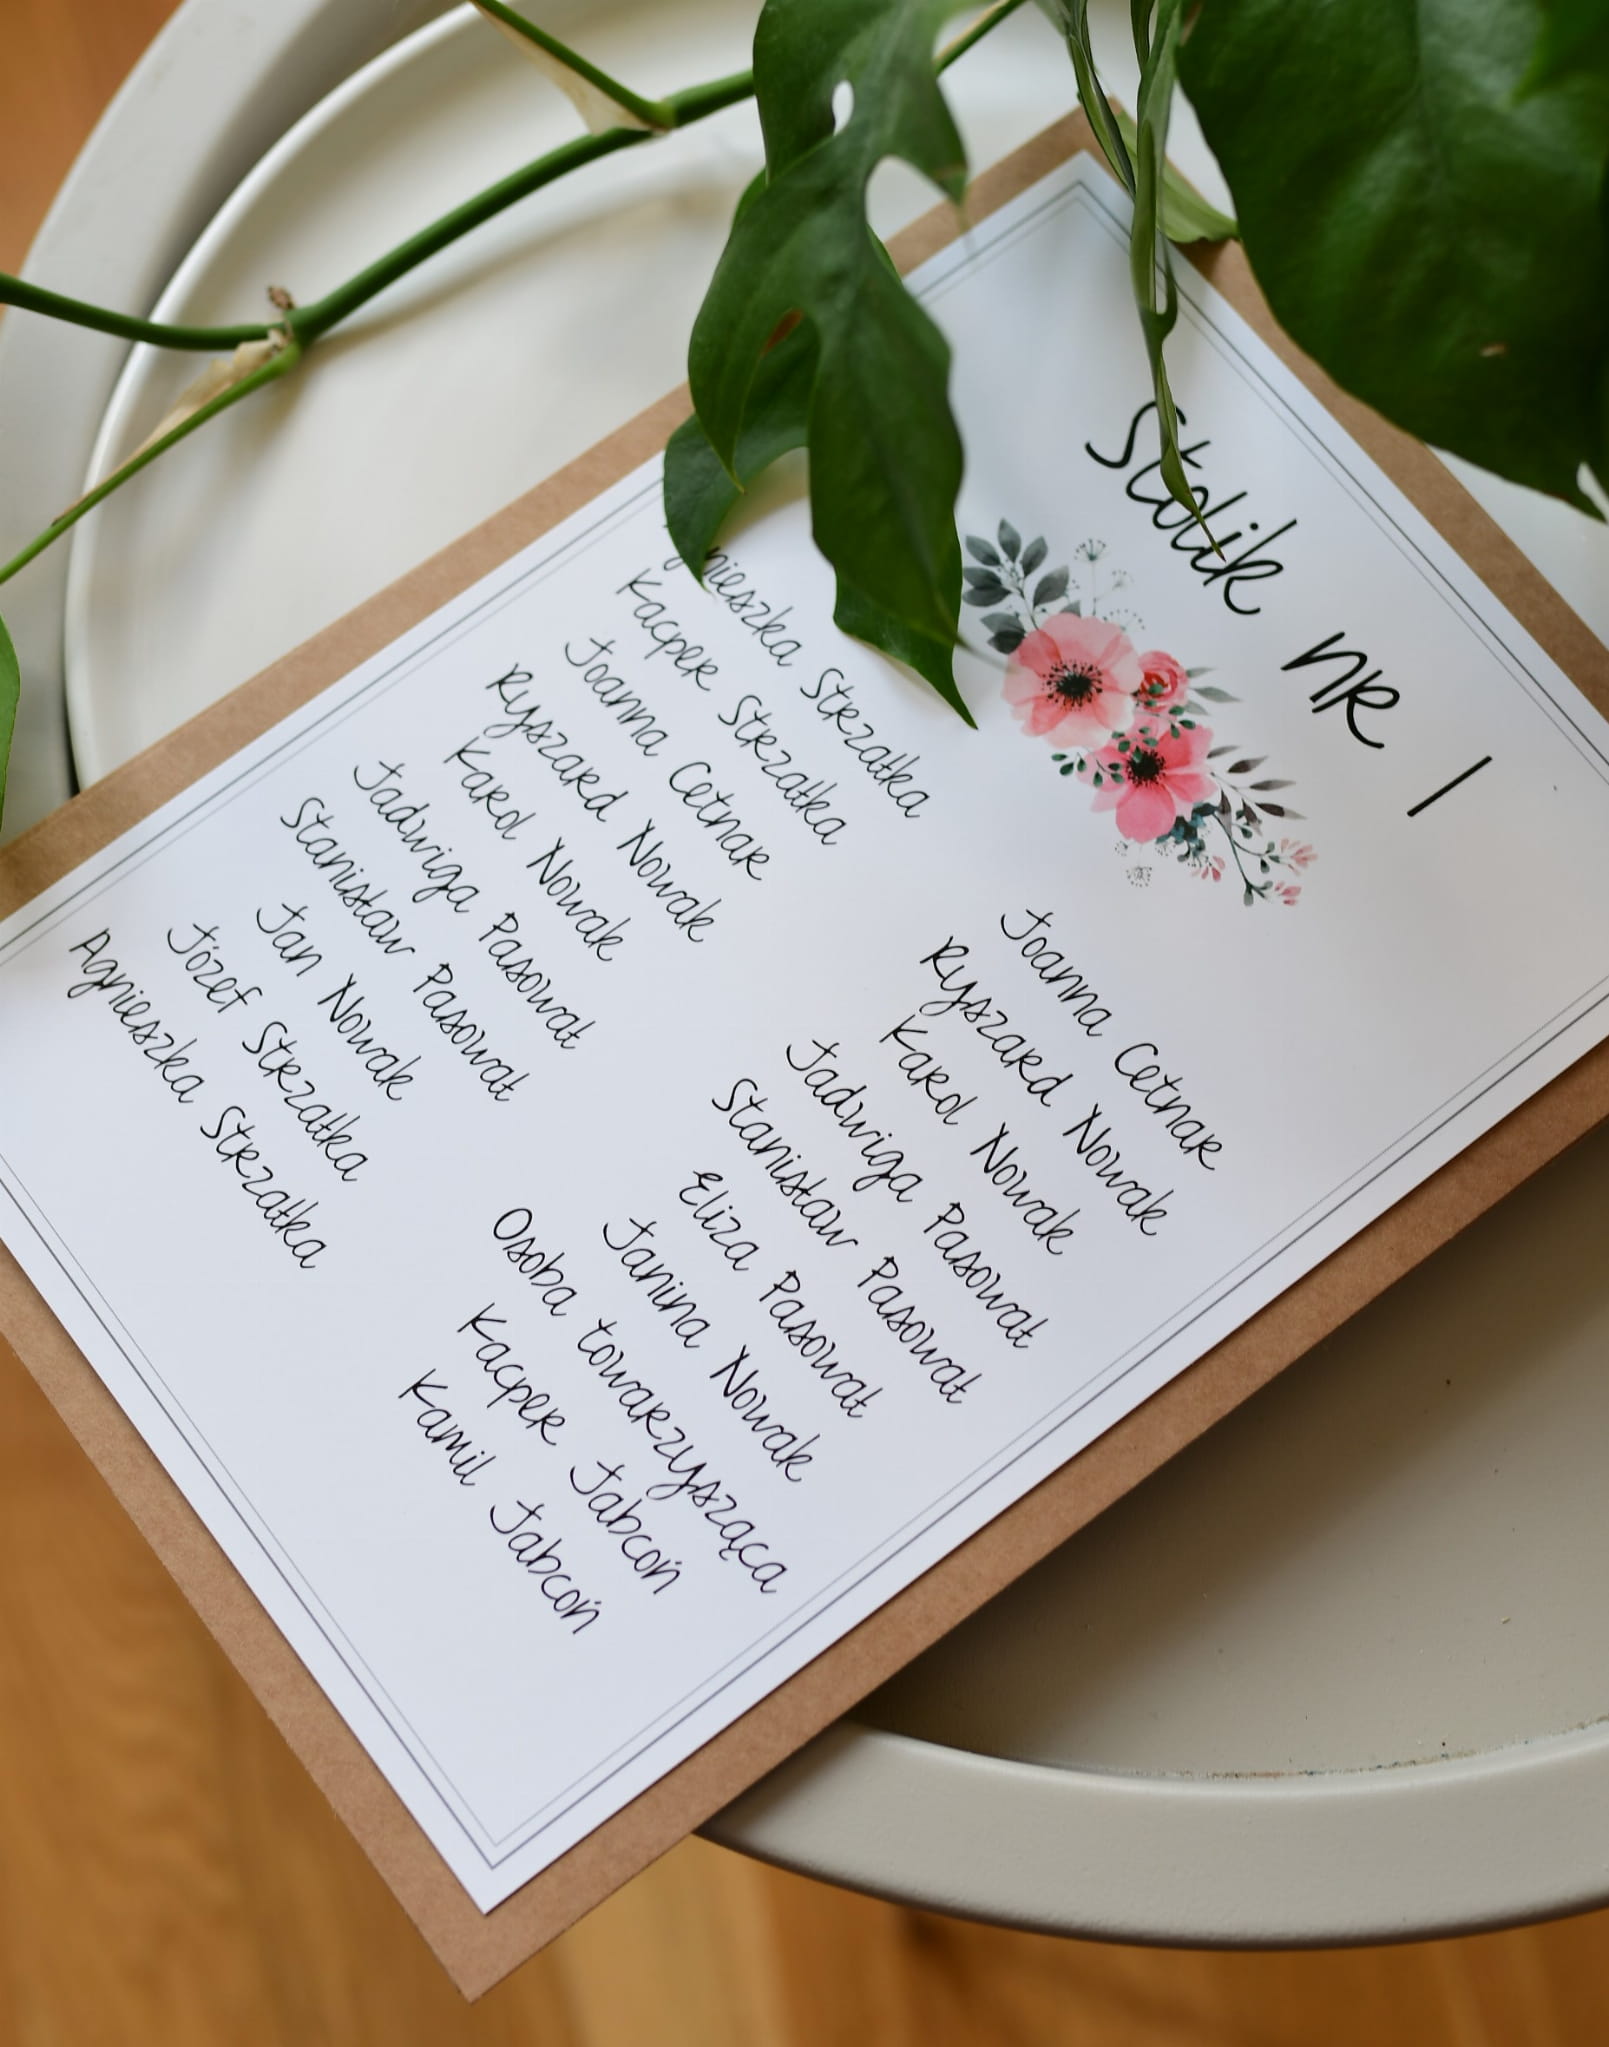 Stolik nr 1
Agnieszka Strzałka
Kacper Strzałka
Joanna Cetnar
Ryszard Nowak
Karol Nowak
Jadwiga Pasowat
Stanisław Pasowat
Jan Nowak
Józef Strzałka
Agnieszka Strzałka
Joanna Cetnar
Ryszard Nowak
Karol Nowak
Jadwiga Pasowat
Stanisław Pasowat
Eliza Pasowat
Janina Nowak
Osoba towarzysząca
Kacper Jabcoń
Kamil Jabcoń